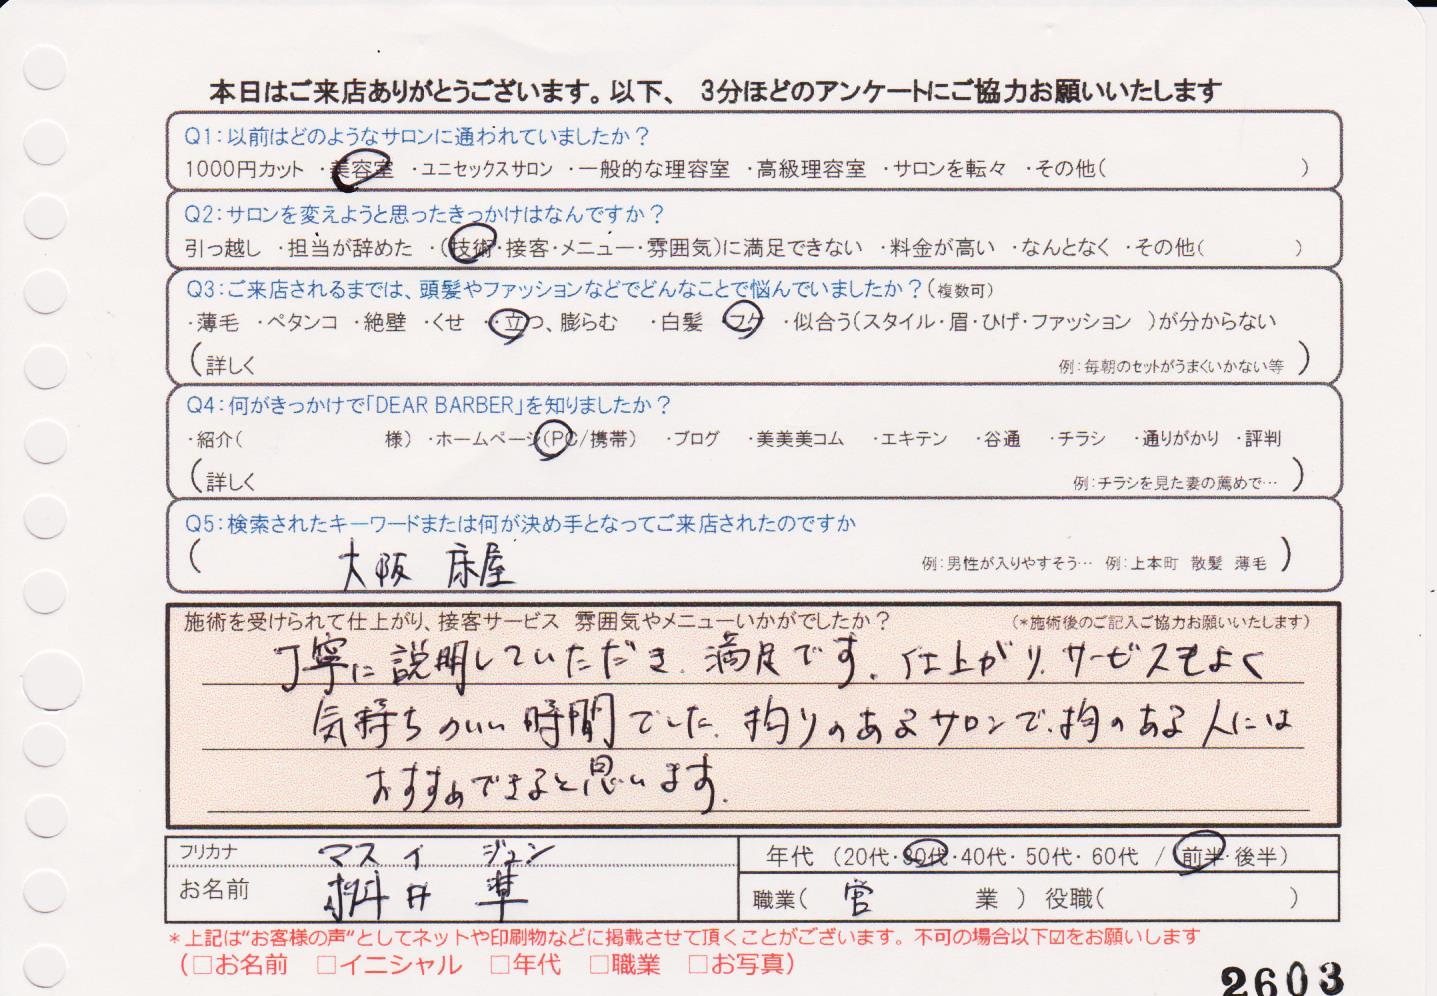 本日はご来店ありがとうございます。以下、 3分ほどのアンケートにご協力お願いいたします
Q1:以前はどのようなサロンに通われていましたか？
1000円カット ・美容室 ・ユニセックスサロン ・一般的な理容室 ・高級理容室 ・サロンを転々 ・その他( )
Q2:サロンを変えようと思ったきっかけはなんですか？
引っ越し ・担当が辞めた ・(技術・接客・メニュー・雰囲気)に満足できない ・料金が高い ・なんとなく ・その他( )
Q3:ご来店されるまでは、頭髪やファッションなどでどんなことで悩んでいましたか？(複数可)
・薄毛 ・ペタンコ ・絶壁 ・くせ ・立つ、膨らむ ・白髪 ・フケ ・似合う(スタイル・眉・ひげ・ファッション )が分からない
(詳しく 例:毎朝のセットがうまくいかない等 )
Q4:何がきっかけで「DEAR BARBER」を知りましたか？
・紹介( 様) ・ホームページ(PC/携帯) ・ブログ ・美美美コム ・エキテン ・谷通 ・チラシ ・通りがかり ・評判
(詳しく 例:チラシを見た妻の薦めで… )
Q5:検索されたキーワードまたは何が決め手となってご来店されたのですか
( 大阪 床屋 例:男性が入りやすそう… 例:上本町 散髪 薄毛 )
施術を受けられて仕上がり、接客サービス 雰囲気やメニューいかがでしたか？ (*施術後のご記入ご協力お願いいたします)
丁寧に説明していただき、満足です。仕上がり、サービスもよく
気持ちのいい時間でした。拘りのあるサロンで、拘のある人には
おすすめできると思います。
フリカナ マスイ ジュン
年代 (20代・30代・40代・50代・60代 / 前半・後半)
お名前 桝井 準
職業( 営 業 ) 役職( )
*上記は“お客様の声“としてネットや印刷物などに掲載させて頂くことがございます。不可の場合以下☑をお願いします
(□お名前 □イニシャル □年代 □職業 □お写真)
2603